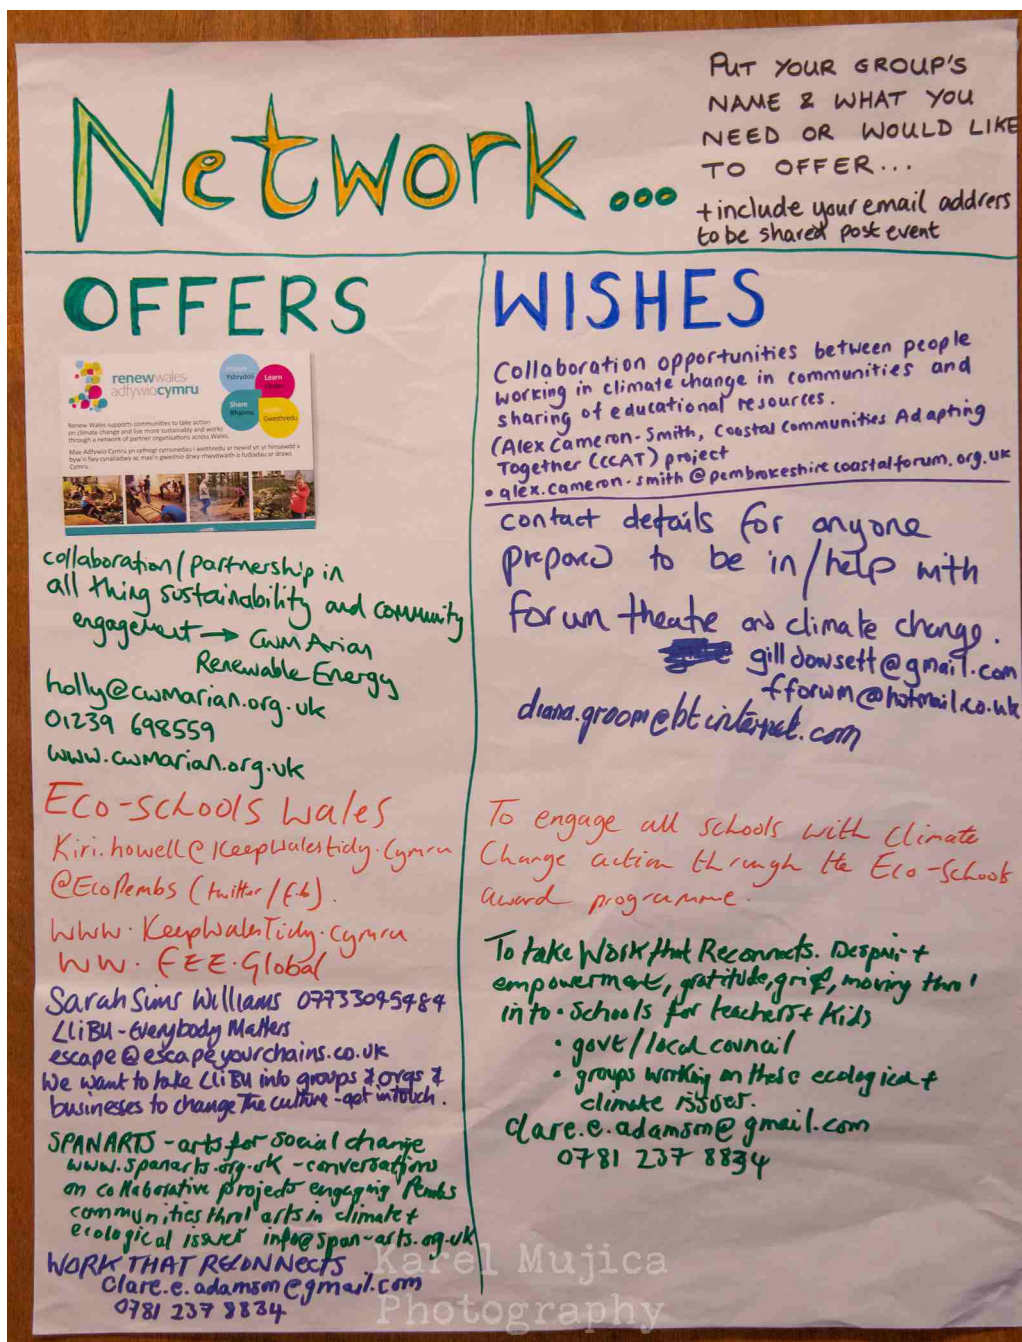 Network...
PUT YOUR GROUP'S
NAME & WHAT YOU
NEED OR WOULD LIKE
TO OFFER...
+ include your email address
to be shared post event
OFFERS
renewwales
adfywiocymru
Ysbrydoli
Learn
Share
Rhannu
Gweithredu
Renew Wales supports communities to take action
on climate change and live more sustainably and works
through a network of partner organisations across Wales.
Mae Adfywio Cymru yn cefnogi cymunedau i weithredu ar newid yn yr hinsawdd a
byw'n fwy cynaliadwy ac mae'n gweithio drwy rhwydwaith o fudiadau ar draws
Cymru
collaboration/partnership in
all thing sustainability and community
engagement → Cwm Arian
Renewable Energy
holly@cwmarian.org.uk
01239 698559
www.cwmarian.org.uk
Eco-Schools Wales
Kiri.howell@KeepWalestidy.Cymru
@EcoPembs (twitter/f.b).
WWW.KeepWalesTidy.Cymru
WW.FEE.Global
Sarah Sims Williams 07733095484
LLiBU - Everybody Matters
escape@escapeyourchains.co.uk
We want to take LLiBU into groups & orgs &
businesses to change the culture - get in touch.
SPANARTS - arts for social change
www.spanarts.org.uk - conversations
on collaborative projects engaging Pembs
communities thro' arts in climate +
ecological issues info@span-arts.org.uk
WORK THAT RECONNECTS
clare.e.adamson@gmail.com
0781 237 8834
WISHES
Collaboration opportunities between people
working in climate change in communities and
sharing of educational resources.
(Alex Cameron-Smith, Coastal Communities Adapting
Together (CCAT) project
• alex.cameron-smith@pembrokeshirecoastalforum.org.uk
contact details for anyone
prepared to be in/help with
forum theatre and climate change.
gilldowsett@gmail.com
fforwm@hotmail.co.uk
diana.groom@btinternet.com
To engage all schools with Climate
Change action through the Eco-Schools
award programme.
To take Work that Reconnects. Despair +
empowerment, gratitude, grief, moving thro'
into • Schools for teachers + Kids
• govt/local council
• groups working on these ecological +
climate issues.
clare.e.adamson@gmail.com
0781 237 8834
Karel Mujica
Photography